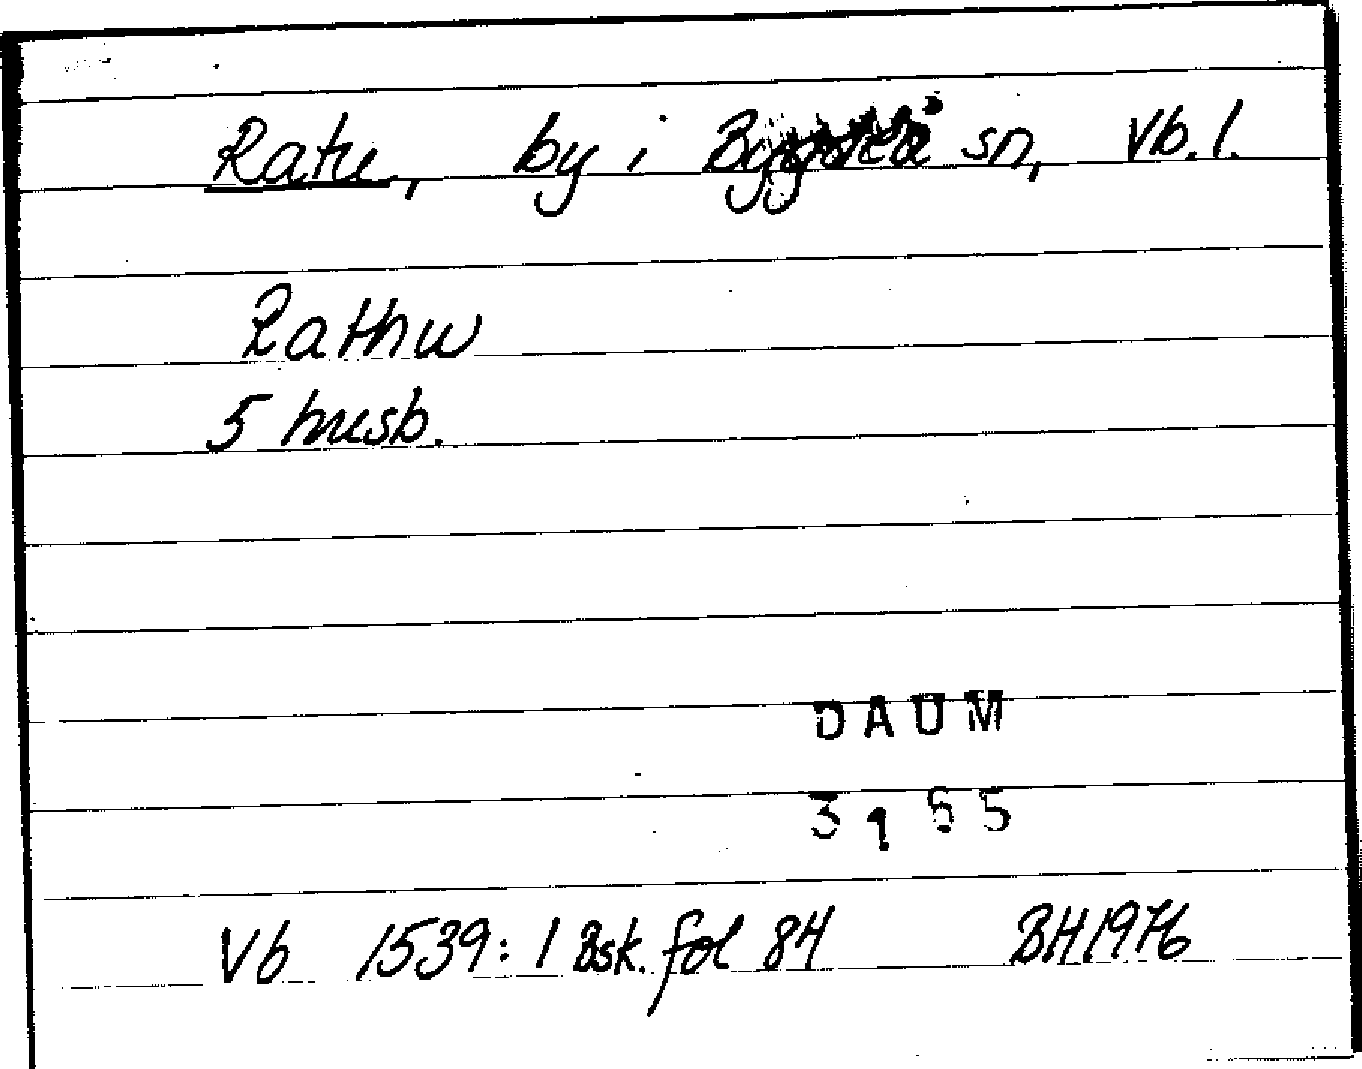 Ratu, by i Bygdeå sn, Vb. l.
Rathw
5 husb.
DAUM
3165
Vb 1539: 1 Bsk. fol 84 BH1976